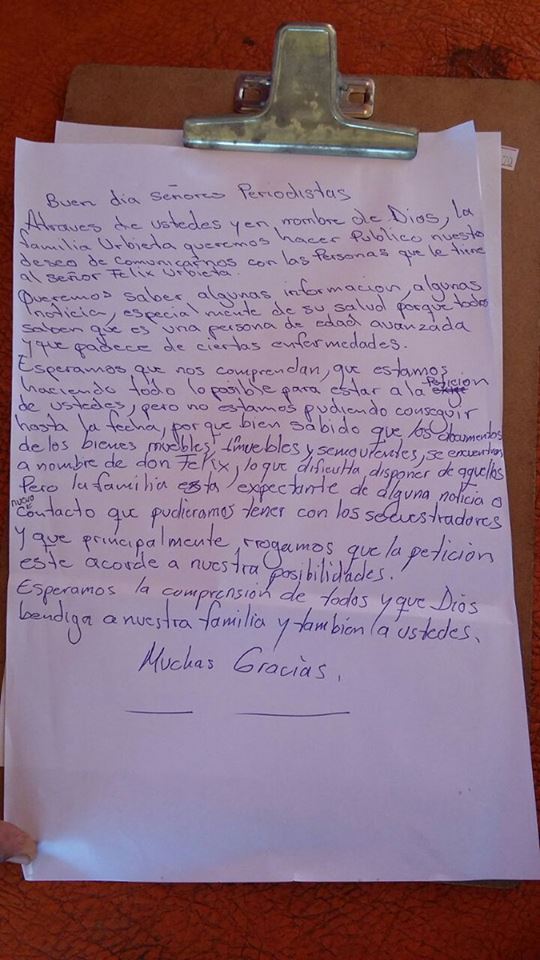 Buen dia señores Periodistas
Atraves de ustedes y en nombre de Dios, la
familia Urbieta queremos hacer Publico nuestro
deseo de comunicarnos con las Personas que le tiene
al señor Felix Urbieta.
Queremos saber algunas informacion, algunas
noticia, especial mente de su salud porque todos
saben que es una persona de edad avanzada
y que padece de ciertas enfermedades.
Esperamos que nos comprendan, que estamos
haciendo todo lo posible para estar a la Peticion
de ustedes, pero no estamos pudiendo conseguir
hasta la fecha, por que bien sabido que los documentos
de los bienes muebles, inmuebles y semovientes, se encuentran
a nombre de don Felix, lo que dificulta, disponer de aquellos
Pero la familia esta expectante de alguna noticia o
nuevo
contacto que pudieramos tener con los secuestradores
y que principalmente, rrogamos que la peticion
este acorde a nuestra posibilidades.
Esperamos la comprensión de todos y que Dios
bendiga a nuestra familia y tambien a ustedes.
Muchas Gracias.
72